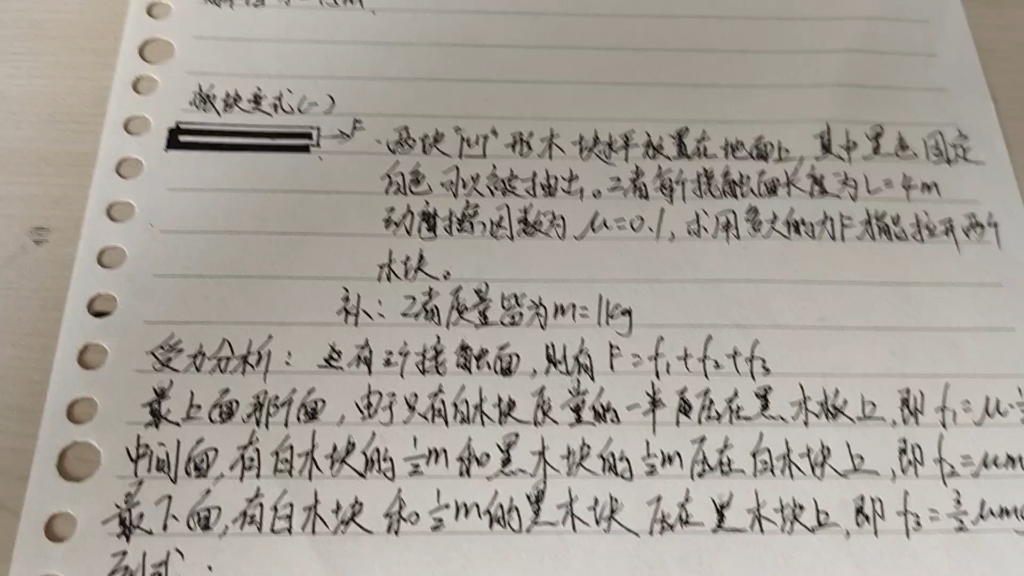 板块变式(一)
F
两块"凹"形木块水平放置在地面上,其中黑色固定
白色可以被抽出。二者每个接触面长度为L=4m
动摩擦因数为μ=0.1,求用多大的力F才能拉开两个
木块。
补:二者质量皆为m=1kg
受力分析:共有三个接触面,则有F=f₁+f₂+f₃
最上面那个面,由于只有白木块质量的一半压在黑木板上,即f₁=μ·
中间面,有白木块的½m和黑木块的½m压在白木块上,即f₂=μm
最下面,有白木块和½m的黑木块压在黑木块上,即f₃=3/2μmg
列式: